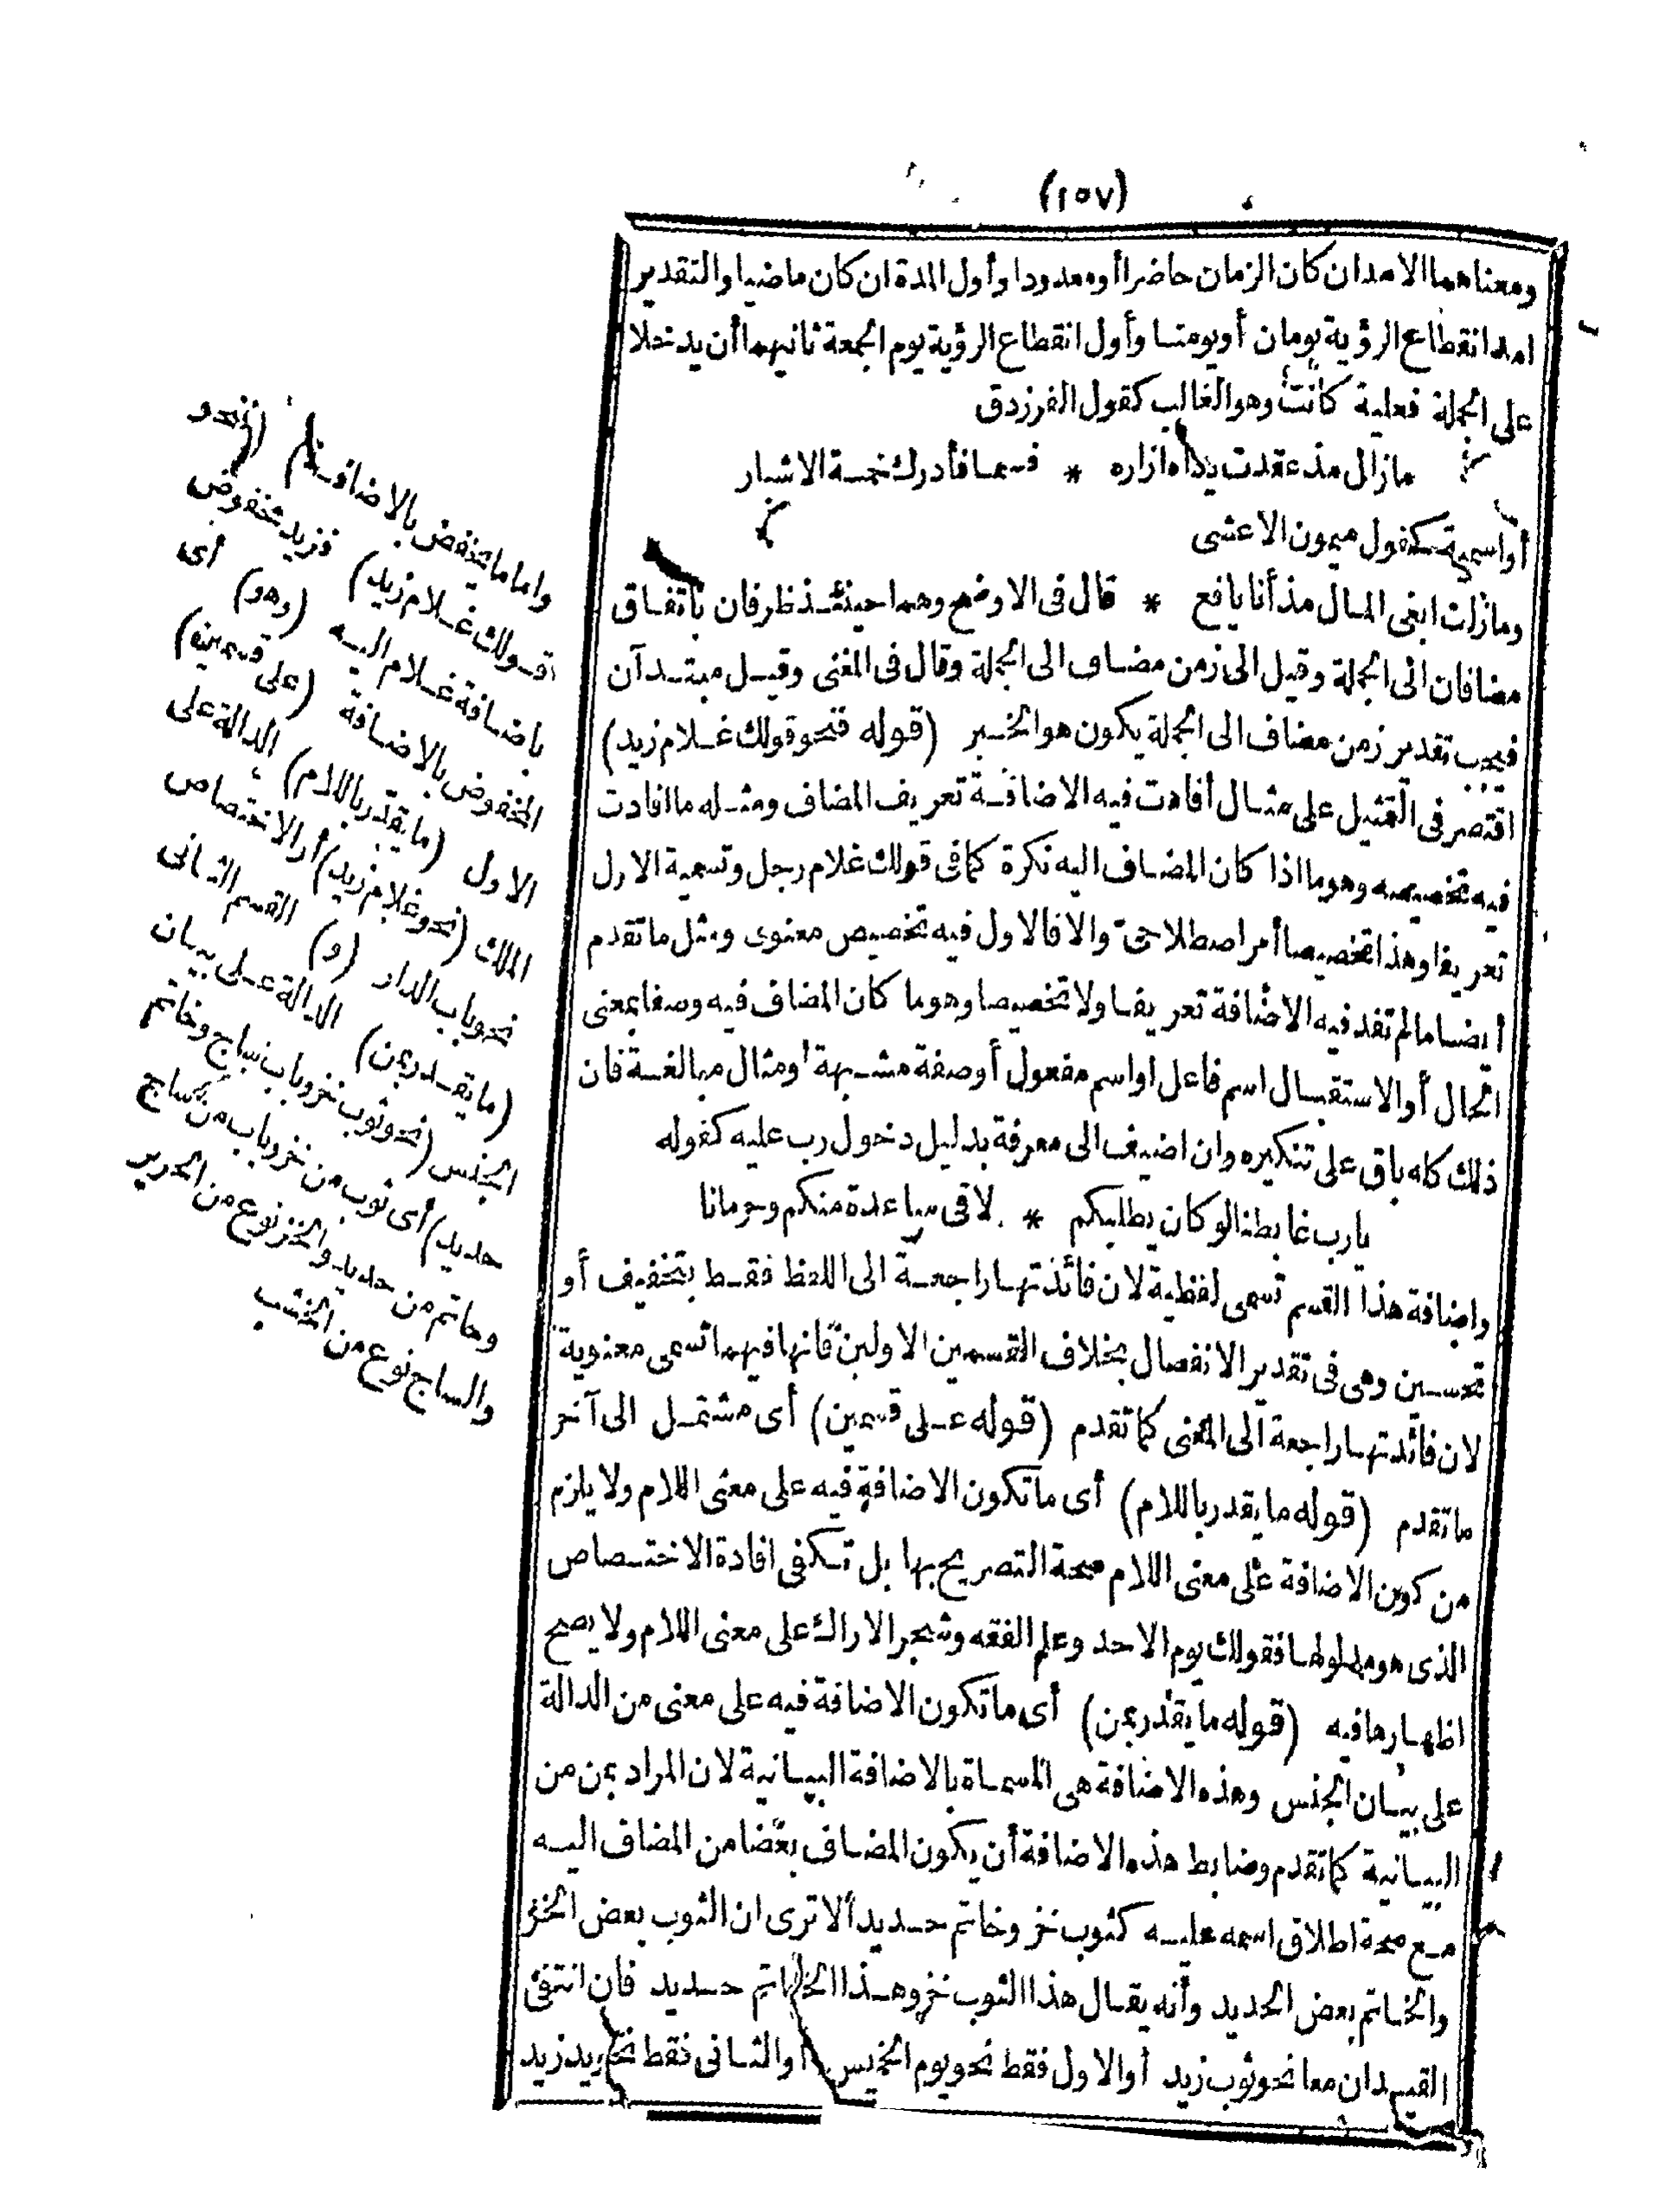 (١٥٧)
ومعناهما الامدان كان الزمان حاضرا أو معدودا وأول المدة ان كان ماضيا والتقدير
امد انقطاع الرؤية يومان أو يومنا وأول انقطاع الرؤية يوم الجمعة ثانيهما أن يدخلا
على الجملة فعلية كانت وهو الغالب كقول الفرزدق
مازال مذ عقدت يداه ازاره * فسما فأدرك خمسة الاشبار
أو اسمية كقول ميمون الاعشى
ومازلت ابغى المال مذ أنا يافع * قال فى الاوضح وهما حينئذ ظرفان باتفاق
مضافان الى الجملة وقيل الى زمن مضاف الى الجملة وقال فى المغنى وقيل مبتدآن
فيجب تقدير زمن مضاف الى الجملة يكون هو الخبر (قوله فنحو قولك غلام زيد)
اقتصر فى التمثيل على مثال أفادت فيه الاضافة تعريف المضاف ومثله ما افادت
فيه تخصيصه وهو ما اذا كان المضاف اليه نكرة كما فى قولك غلام رجل وتسمية الاول
تعريفا وهذا تخصيصا أمر اصطلاحى والا فالاول فيه تخصيص معنوى ومثل ما تقدم
أيضا ما لم تفد فيه الاضافة تعريفا ولا تخصيصا وهو ما كان المضاف فيه وصفا بمعنى
الحال أو الاستقبال اسم فاعل او اسم مفعول أو صفة مشبهة او مثال مبالغة فان
ذلك كله باق على تنكيره وان اضيف الى معرفة بدليل دخول رب عليه كقوله
يارب غابطنا لو كان يطلبكم * لاقى مباعدة منكم وحرمانا
واضافة هذا القسم تسمى لفظية لان فائدتها راجعة الى اللفظ فقط بتخفيف أو
تحسين وهى فى تقدير الانفصال بخلاف القسمين الاولين فانها فيهما تسمى معنوية
لان فائدتها راجعة الى المعنى كما تقدم (قوله على قسمين) أى مشتمل الى آخر
ما تقدم (قوله ما يقدر باللام) أى ما تكون الاضافة فيه على معنى اللام ولا يلزم
من كون الاضافة على معنى اللام صحة التصريح بها بل تكفى افادة الاختصاص
الذى هو مدلولها فقولك يوم الاحد وعلم الفقه وشجر الاراك على معنى اللام ولا يصح
اظهارها فيه (قوله ما يقدر بمن) أى ما تكون الاضافة فيه على معنى من الدالة
على بيان الجنس وهذه الاضافة هى المسماة بالاضافة البيانية لان المراد بمن من
البيانية كما تقدم وضابط هذه الاضافة أن يكون المضاف بعضا من المضاف اليه
مع صحة اطلاق اسمه عليه كثوب خز وخاتم حديد ألا ترى ان الثوب بعض الخز
والخاتم بعض الحديد وأنه يقال هذا الثوب خز وهذا الخاتم حديد فان انتفى
القيدان معا نحو ثوب زيد أو الاول فقط نحو يوم الخميس أو الثانى فقط نحو يد زيد
واما ما يخفض بالاضافة فنحو
قولك غلام زيد) فزيد مخفوض
باضافة غلام اليه (وهو) أى
المخفوض بالاضافة (على قسمين)
الاول (ما يقدر باللام) الدالة على
الملك (نحو غلام زيد) أو الاختصاص
نحو باب الدار (و) القسم الثانى
(ما يقدر بمن) الدالة على بيان
الجنس (نحو ثوب خز وباب ساج وخاتم
حديد) أى ثوب من خز وباب من ساج
وخاتم من حديد والخز نوع من الحرير
والساج نوع من الخشب